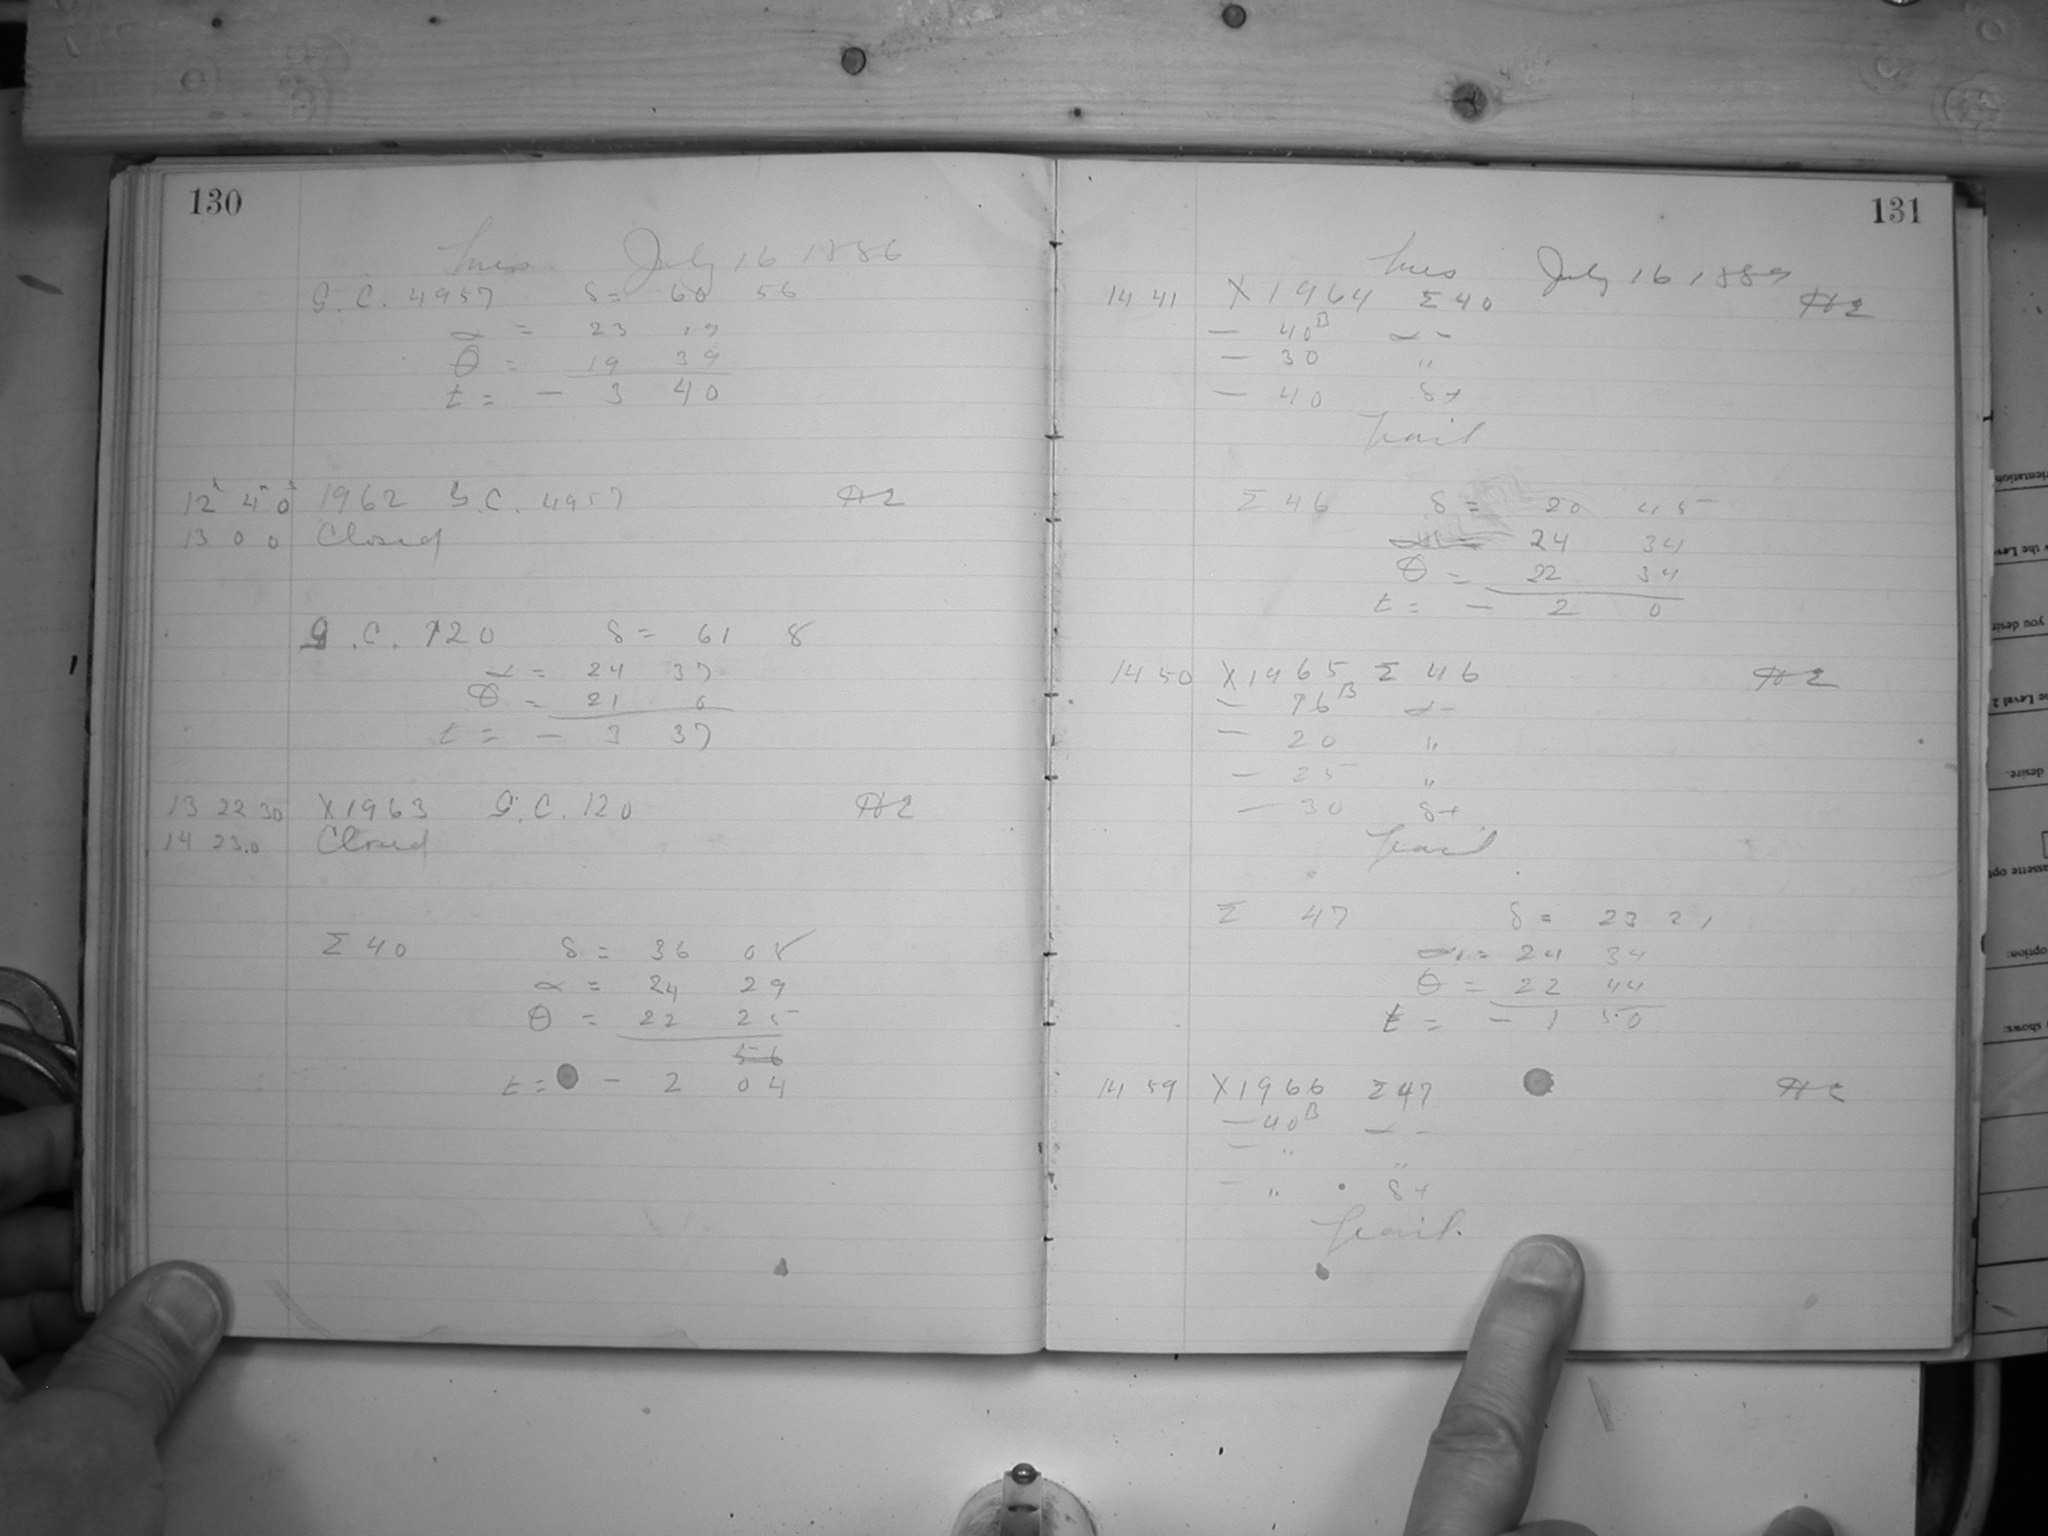 130
Tues. July 16 1886
G.C. 4957 δ = 60 56
α = 23 19
θ = 19 39
t = - 3 40
12h 4m 0s 1962 G.C. 4957
13 0 0 Closed
G.C. 120 δ = 61 8
α = 24 37
θ = 21 0
t = - 3 37
13 22 30 X1963 G.C. 120
14 23.0 Closed
Σ 40 δ = 36 05
α = 24 29
θ = 22 25
56
t = - 2 04
131
Tues July 16 1889
14 41 X1964 Σ 40
- 40B α -
- 30 "
- 40 δ +
Trail
Σ 46 δ = 20 45
α = 24 34
θ = 22 34
t = - 2 0
14 50 X1965 Σ 46
- 26B α -
- 20 "
- 25 "
- 30 δ +
Trail
Σ 47 δ = 23 21
α = 24 34
θ = 22 44
t = - 1 50
14 59 X1966 Σ 47
- 40B α -
- " "
- " δ +
Trail.